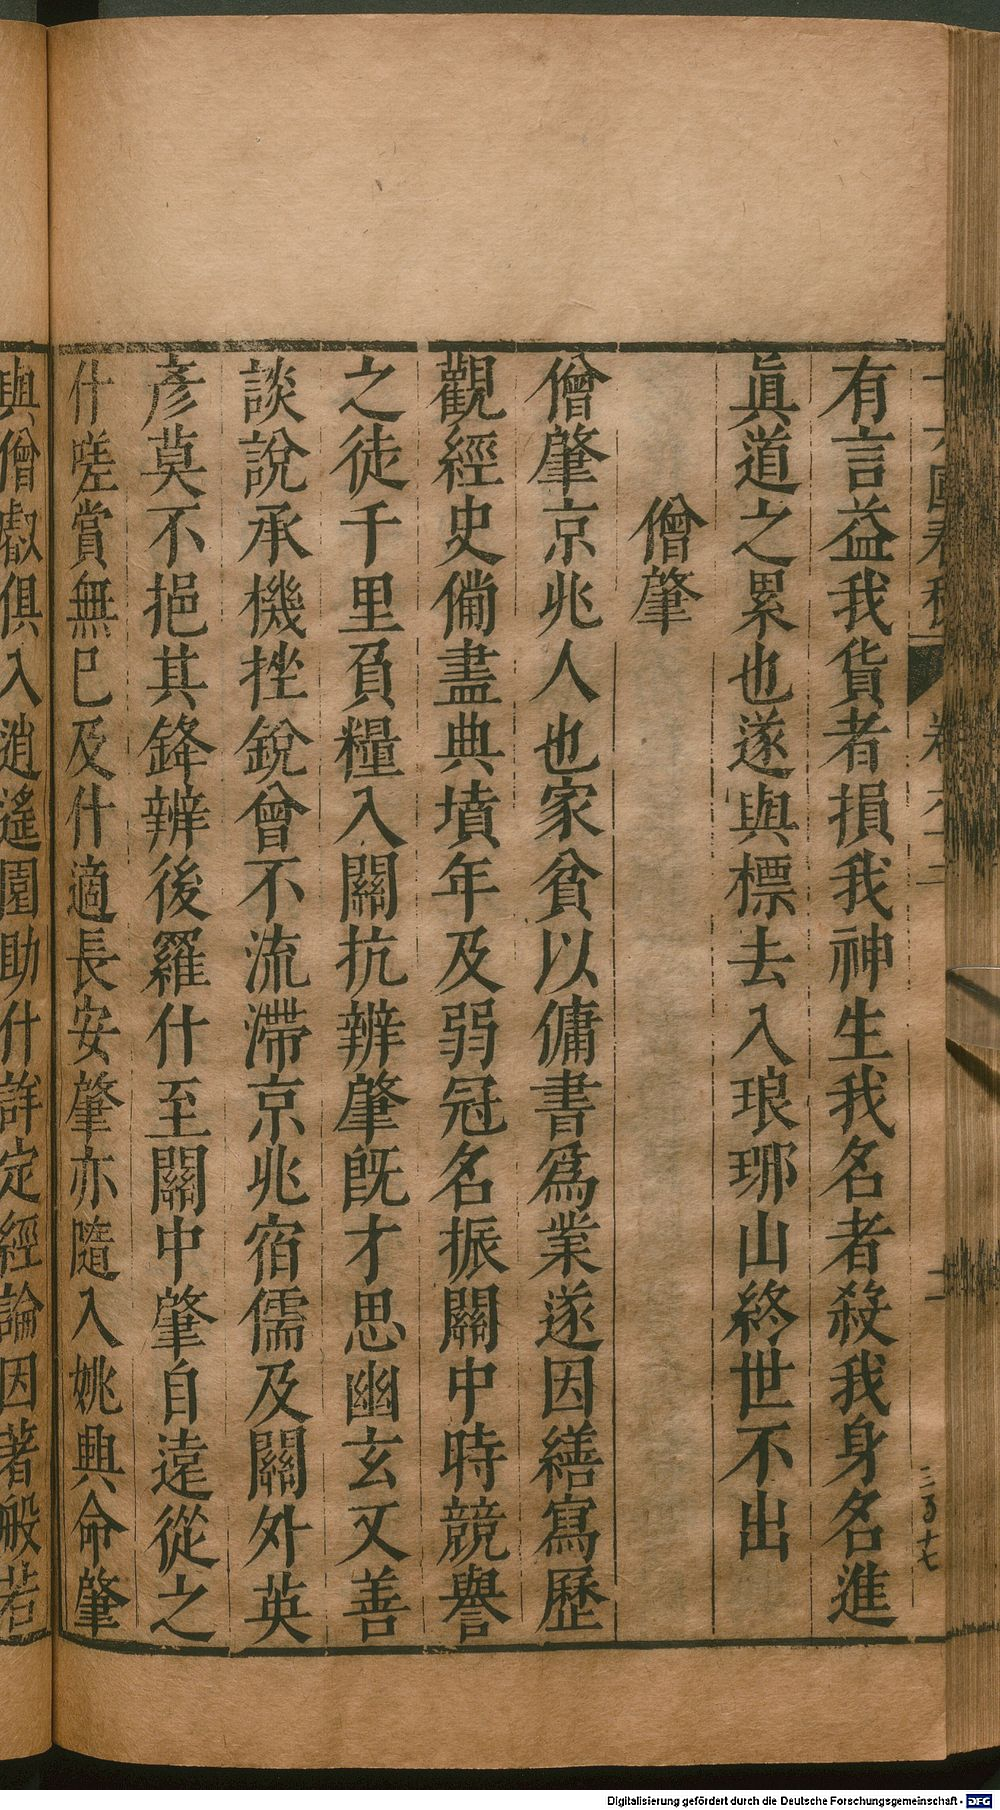 十六國春秋 卷六十二 二
三百十七
有言益我貨者損我神生我名者殺我身名進
眞道之累也遂與標去入琅琊山終世不出
僧肇
僧肇京兆人也家貧以傭書爲業遂因繕寫歷
觀經史俻盡典墳年及弱冠名振關中時競譽
之徒千里負糧入關抗辨肇旣才思幽玄又善
談說承機挫銳曾不流滯京兆宿儒及關外英
彥莫不挹其鋒辨後羅什至關中肇自遠從之
什嗟賞無已及什適長安肇亦隨入姚興命肇
與僧叡俱入逍遙園助什詳定經論因著般若
Digitalisierung gefördert durch die Deutsche Forschungsgemeinschaft - DFG